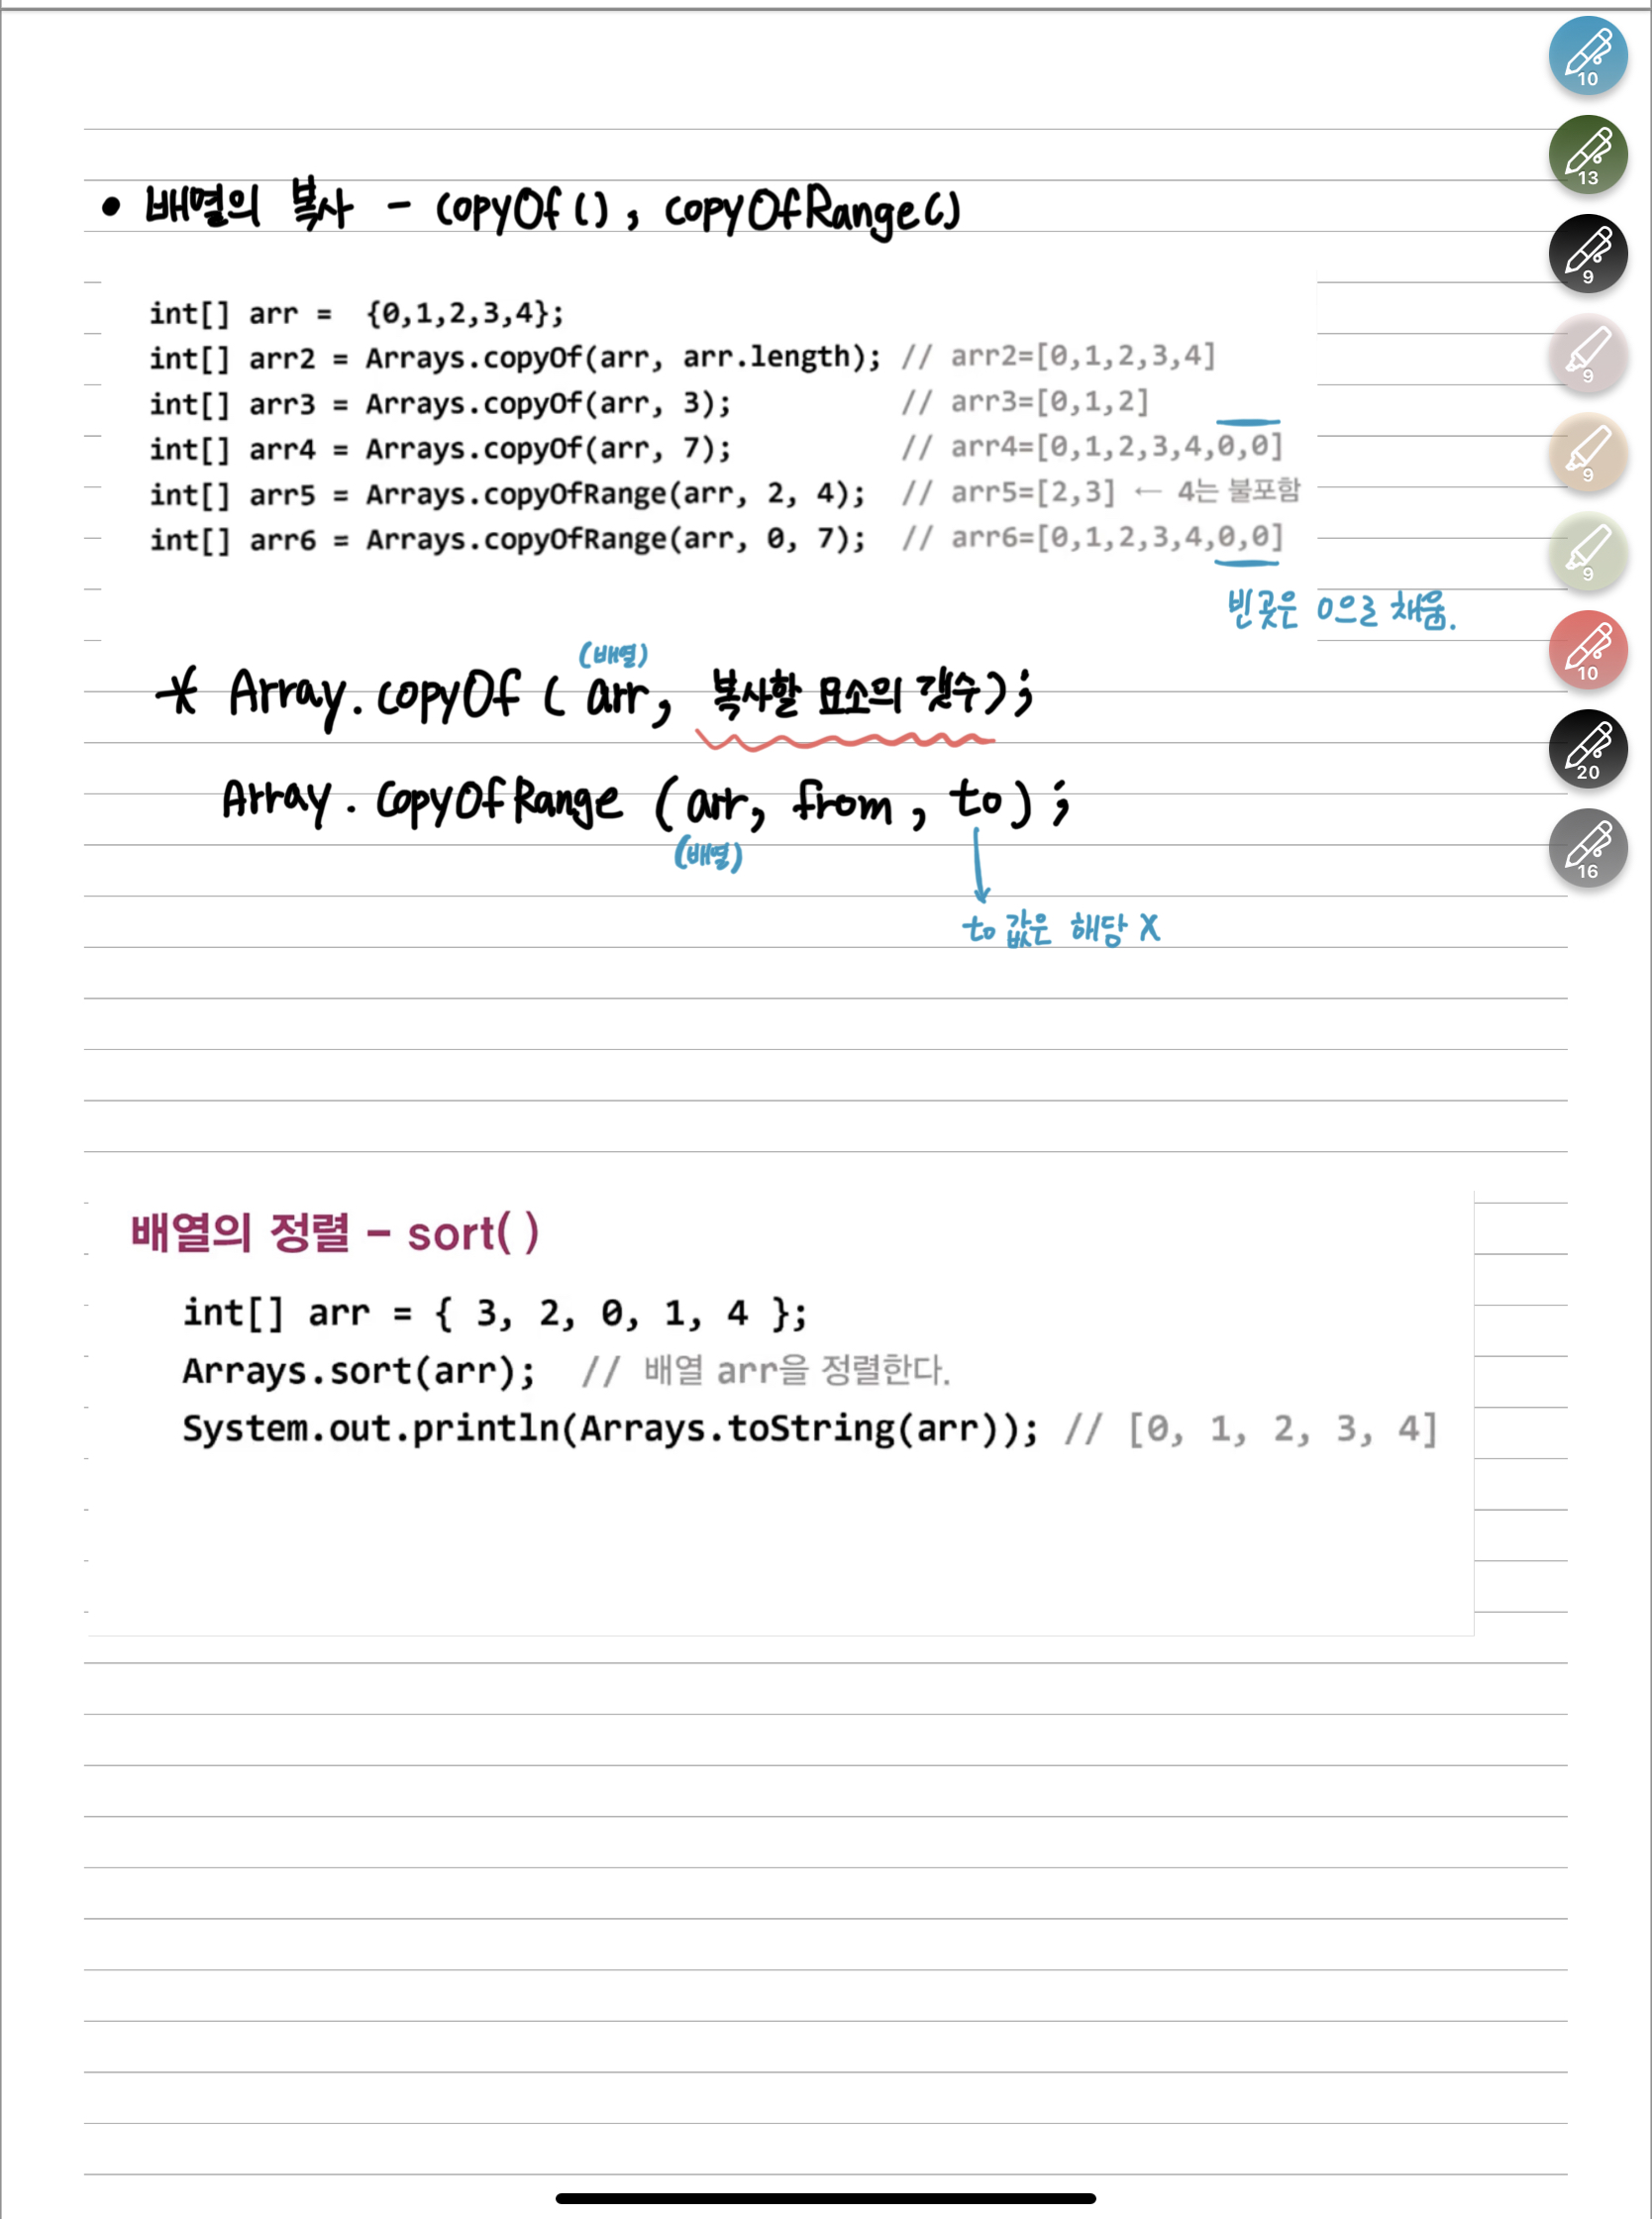 • 배열의 복사 - copyOf(), copyOfRange()
int[] arr =  {0,1,2,3,4};
int[] arr2 = Arrays.copyOf(arr, arr.length); // arr2=[0,1,2,3,4]
int[] arr3 = Arrays.copyOf(arr, 3); // arr3=[0,1,2]
int[] arr4 = Arrays.copyOf(arr, 7); // arr4=[0,1,2,3,4,0,0]
int[] arr5 = Arrays.copyOfRange(arr, 2, 4); // arr5=[2,3] ← 4는 불포함
int[] arr6 = Arrays.copyOfRange(arr, 0, 7); // arr6=[0,1,2,3,4,0,0]
빈곳은 0으로 채움.
(배열)
* Array.copyOf ( arr, 복사할 요소의 갯수);
Array.copyOfRange (arr, from, to);
(배열)
to 값은 해당 X
배열의 정렬 – sort( )
int[] arr = { 3, 2, 0, 1, 4 };
Arrays.sort(arr);  // 배열 arr을 정렬한다.
System.out.println(Arrays.toString(arr)); // [0, 1, 2, 3, 4]
10
13
9
9
9
9
10
20
16